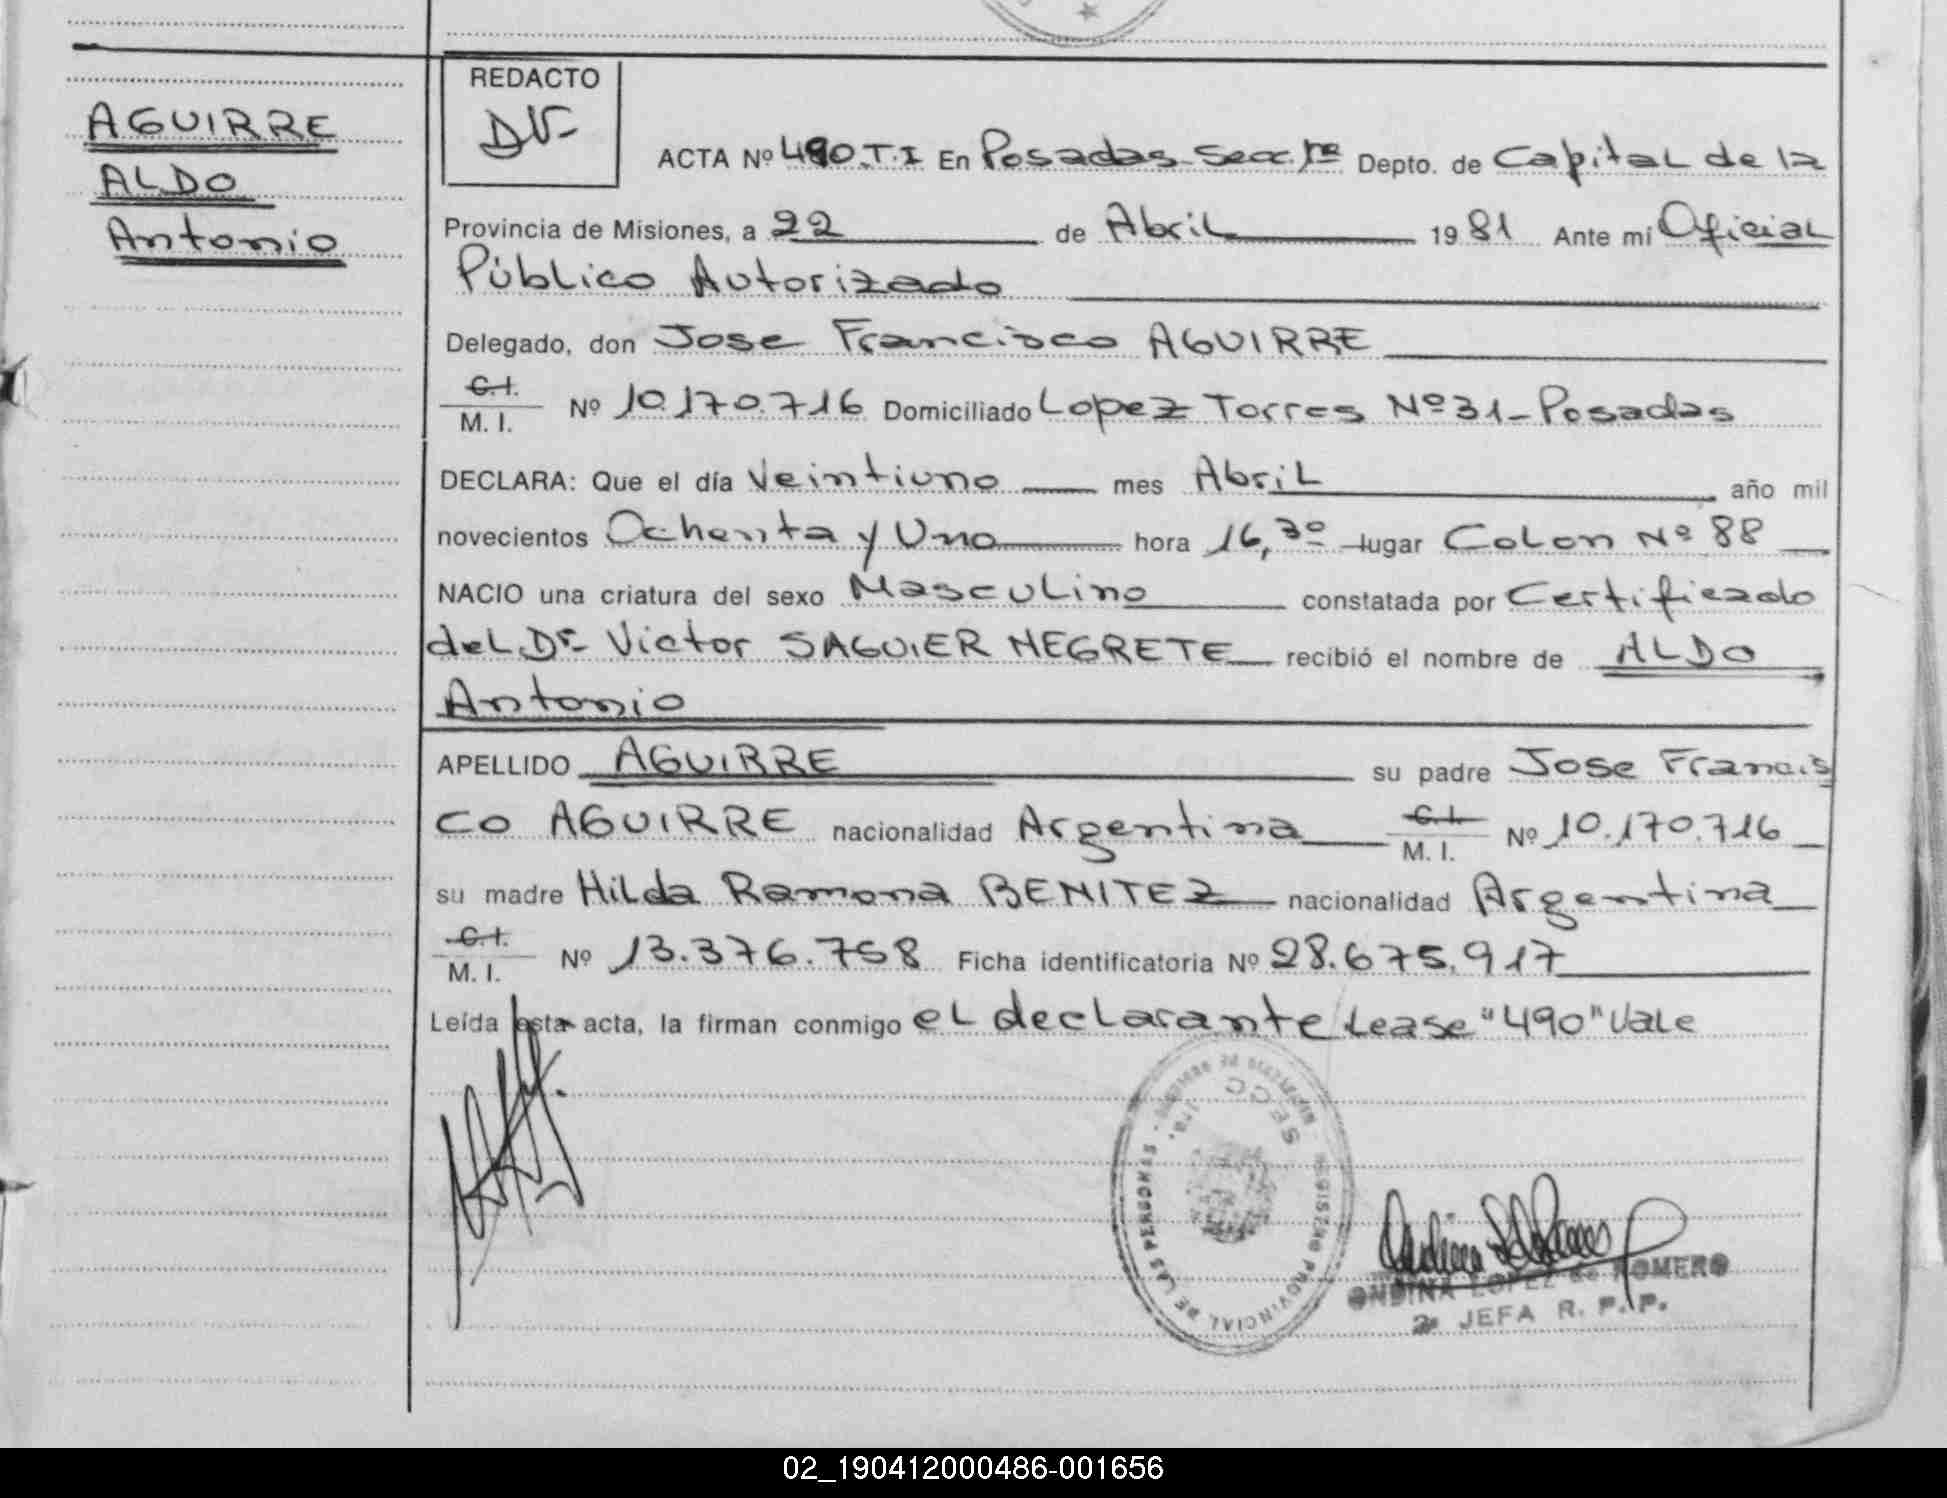 AGUIRRE
ALDO
Antonio
REDACTO
DV-
ACTA Nº 490.T.I En Posadas Secc. 1ra Depto. de Capital de la
Provincia de Misiones, a 22 de Abril 1981 Ante mí Oficial
Público Autorizado
Delegado, don Jose Francisco AGUIRRE
C.I.
M. I. Nº 10.170.716 Domiciliado Lopez Torres Nº 31-Posadas
DECLARA: Que el día Veintiuno mes Abril año mil
novecientos Ochenta y Uno hora 16,30 lugar Colon Nº 88
NACIO una criatura del sexo Masculino constatada por Certificado
del Dr. Victor SAGUIER NEGRETE recibió el nombre de ALDO
Antonio
APELLIDO AGUIRRE su padre Jose Francis
co AGUIRRE nacionalidad Argentina C.I.
M. I. Nº 10.170.716
su madre Hilda Ramona BENITEZ nacionalidad Argentina
C.I.
M. I. Nº 13.376.758 Ficha identificatoria Nº 28.675.917
Leída esta acta, la firman conmigo el declarante Lease "490" Vale
REGISTRO PROVINCIAL DE LAS PERSONAS
SECC. 1ra.
ONDINA LOPEZ de ROMERO
2a JEFA R. P. P.
02_190412000486-001656